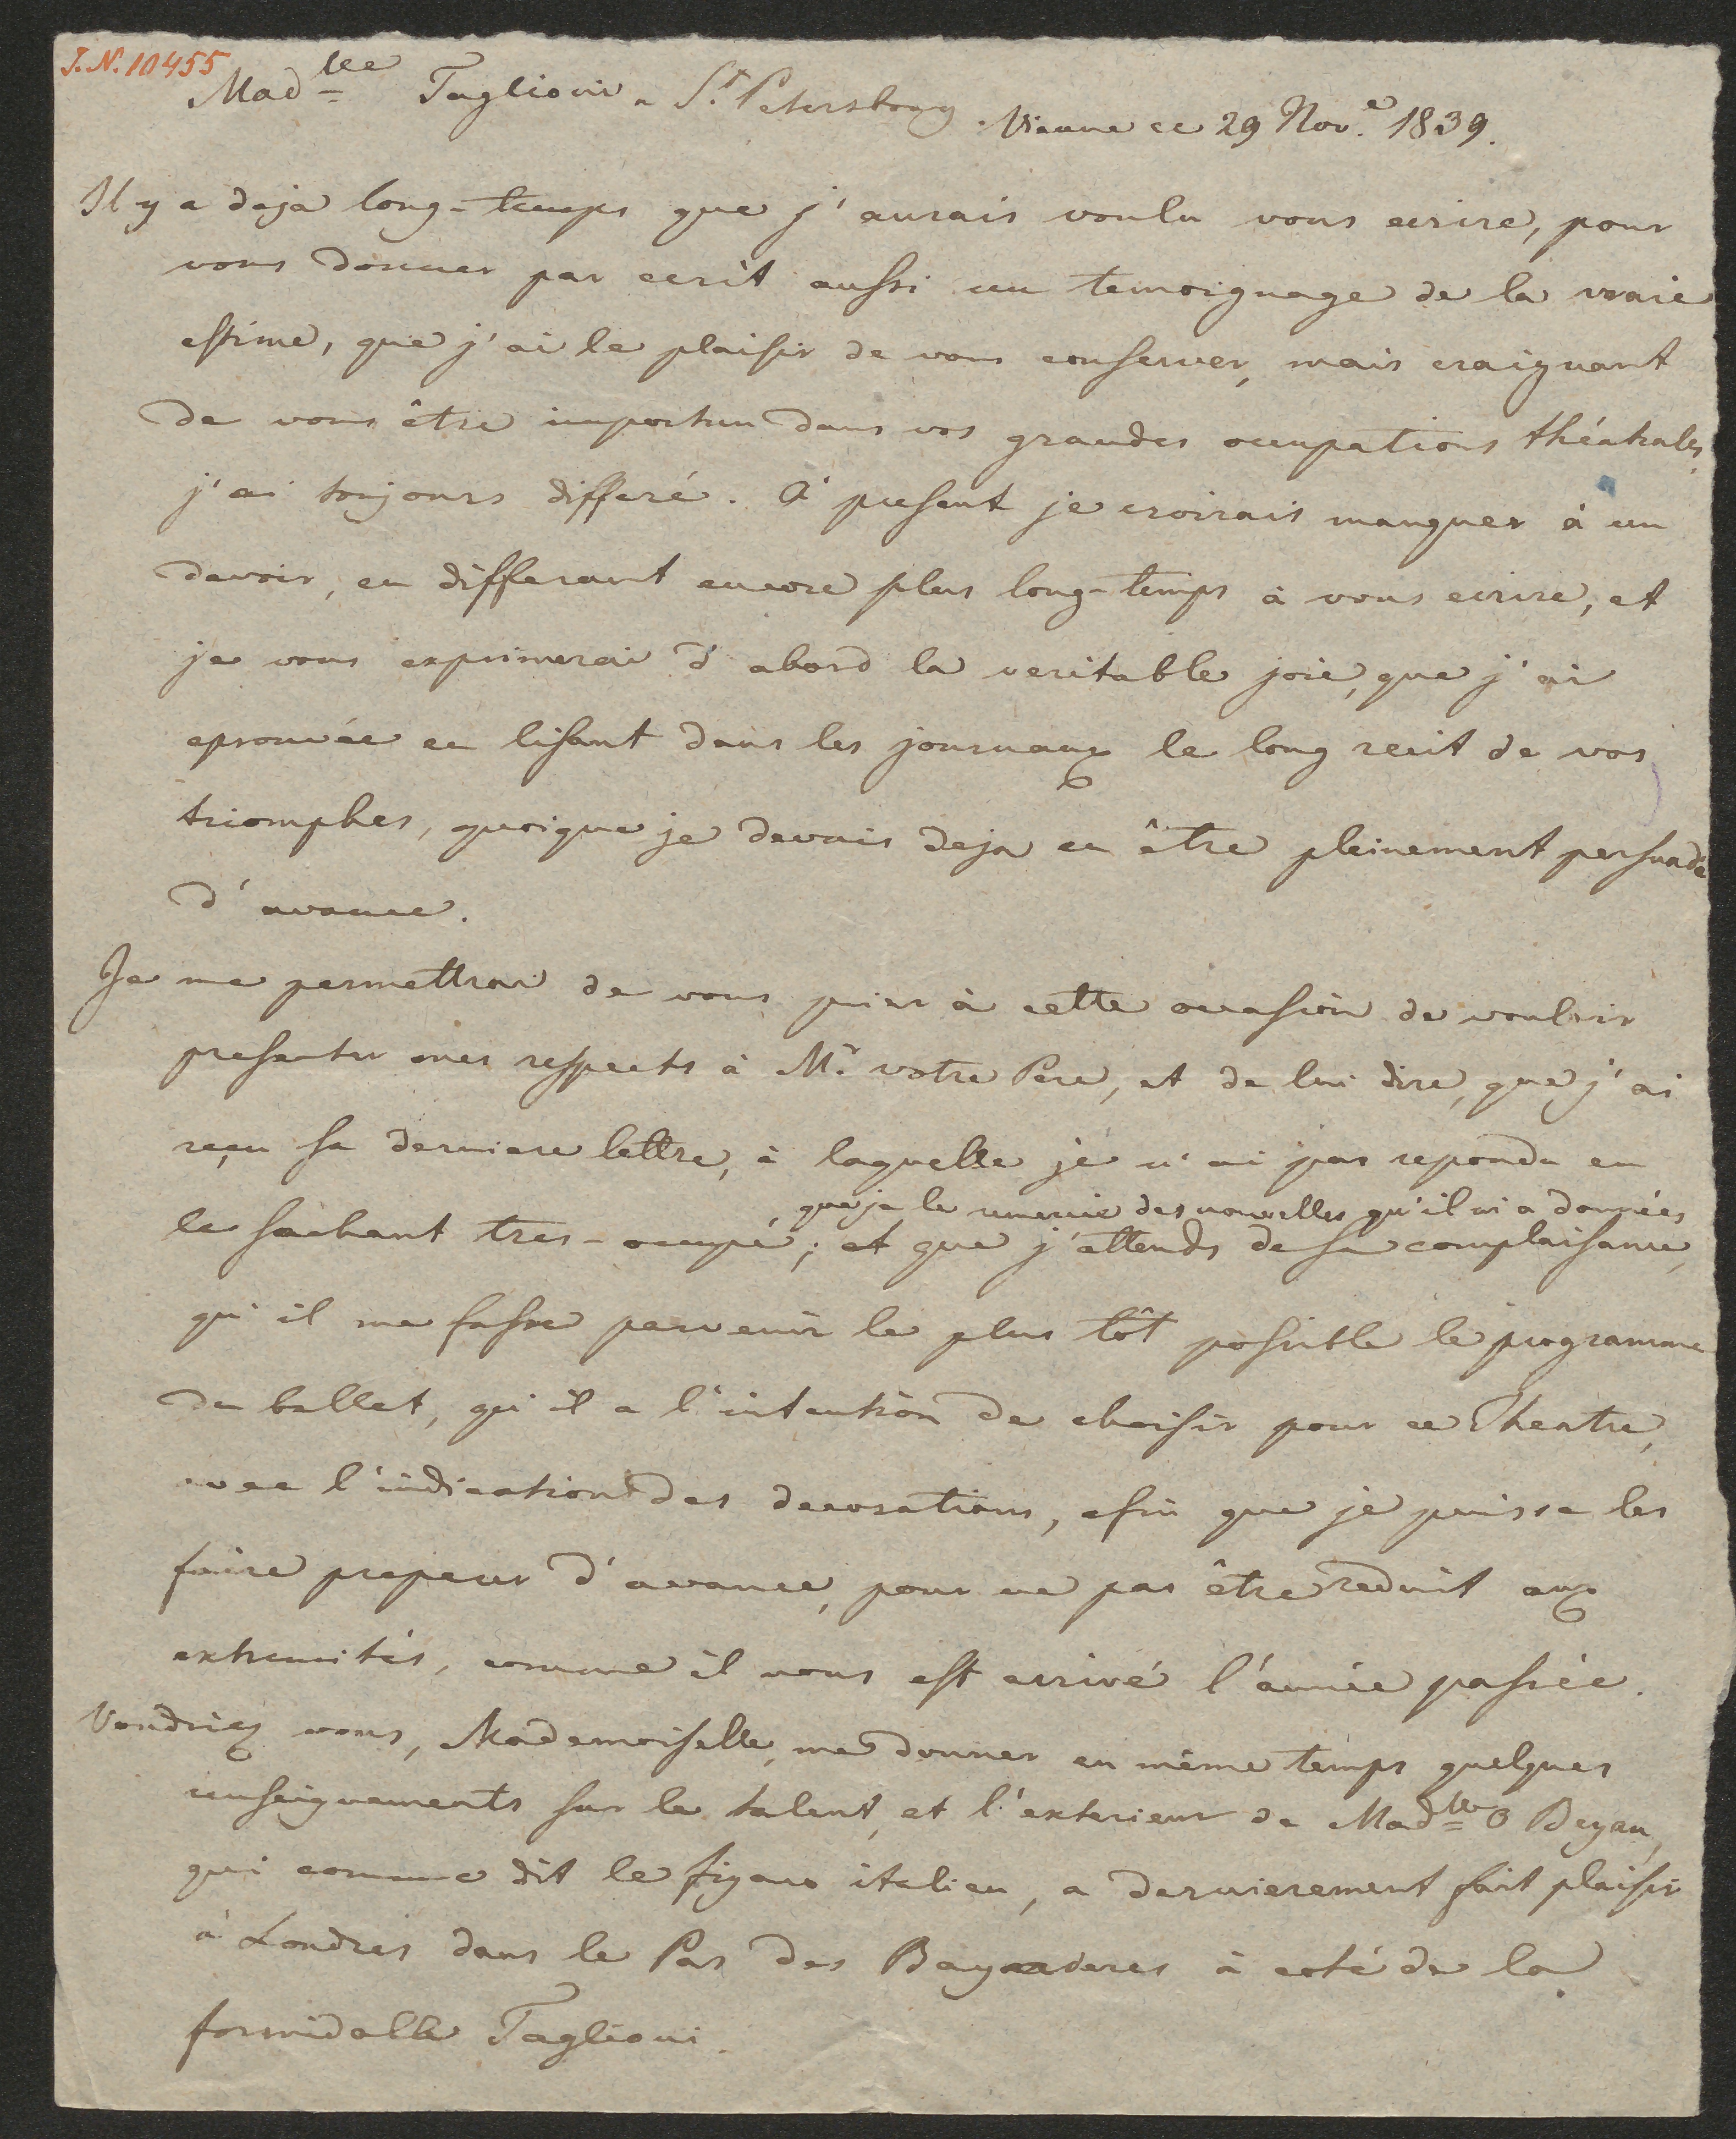 J. N. 10455
Madlle Taglioni a St Petersbourg. Vienne ce 29 Nov.e 1839.
Il y a deja long-temps que j'aurais voulu vous ecrire, pour
vous donner par ecrit aussi un temoignage de la vraie
estime, que j'ai le plaisir de vous conserver, mais craignant
de vous être importun dans vos grandes occupations théatrales,
j'ai toujours differé. A' present je croirais manquer à un
devoir, en differant encore plus long-temps à vous ecrire, et
je vous exprimerai d'abord la veritable joie, que j'ai
eprouvée en lisant dans les journaux le long recit de vos
triomphes, quoique je devais deja en être pleinement persuadé
d'avance.
Je me permettrai de vous prier à cette occasion de vouloir
presenter mes respects à Mr votre Pere, et de lui dire, que j'ai
reçu sa derniere lettre, à laquelle je n'ai pas repondu en
que je le remercie des nouvelles qu'il m'a données
le sachant tres-occupé; et que j'attends de sa complaisance,
qu'il me fasse parvenir le plus tôt possible le programme
du ballet, qu'il a l'intention de choisir pour ce Theatre,
avec l'indication des decorations, afin que je puisse les
faire preparer d'avance, pour ne pas être reduit aux
extremités, comme il nous est arrivé l'année passée.
Voudriez vous, Mademoiselle, me donner en même temps quelques
renseignements sur le talent, et l'exterieur de Madlle O Beyan,
qui comme dit le figaro italien, a dernierement fait plaisir
à Londres dans le Pas des Bayaderes à coté de la
formidable Taglioni.